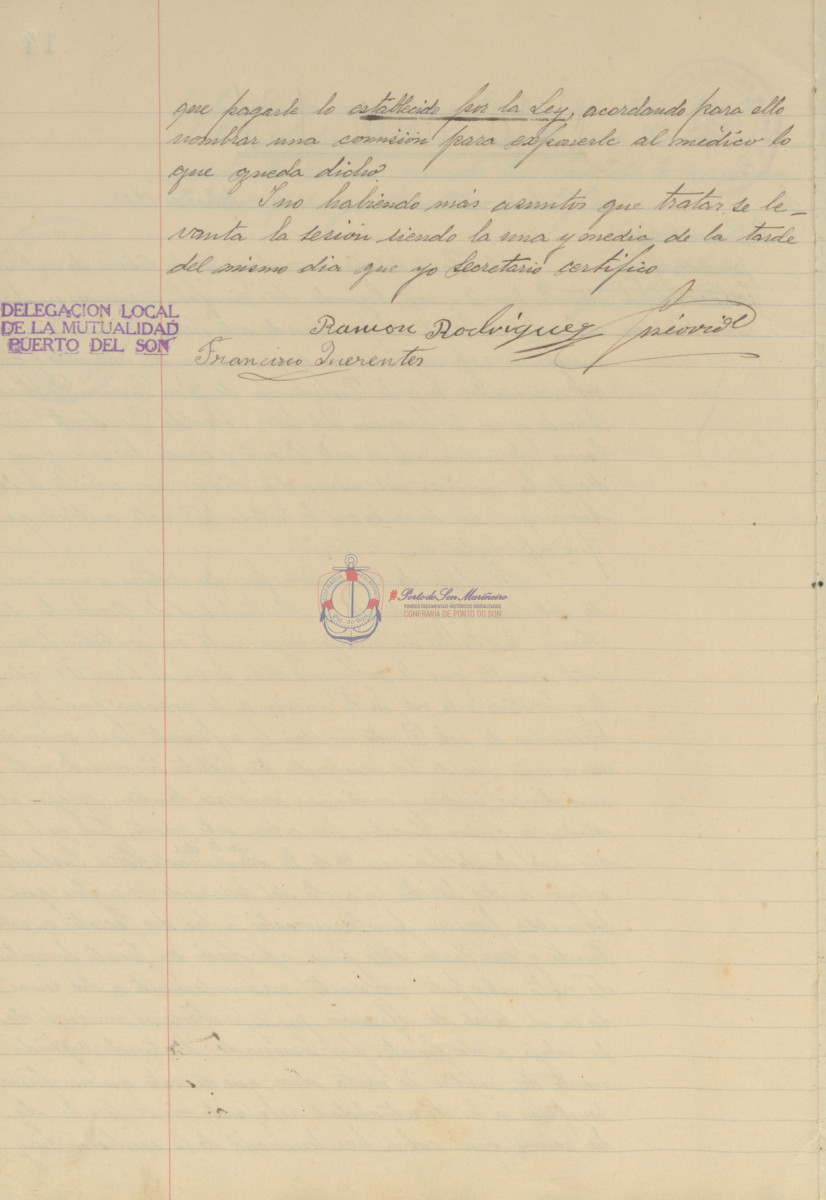 que pagarle lo establecido por la Ley, acordando para ello
nombrar una comisión para exponerle al médico lo
que queda dicho.
I no habiendo más asuntos que tratar se le-
vanta la sesión siendo la una y media de la tarde
del mismo dia que yo Secretario certifico
DELEGACION LOCAL
DE LA MUTUALIDAD
PUERTO DEL SON
Ramon Rodríguez
Francisco Querentes
#PortodoSon Mariñeiro
FONDOS DOCUMENTAIS HISTÓRICOS DIXITALIZADOS
CONFRARÍA DE PORTO DO SON